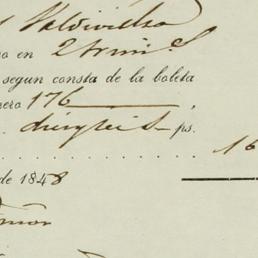 Valdivielso
so en
segun consta de la boleta
nero 176 ,
diezyseis ps.
16
de 1848